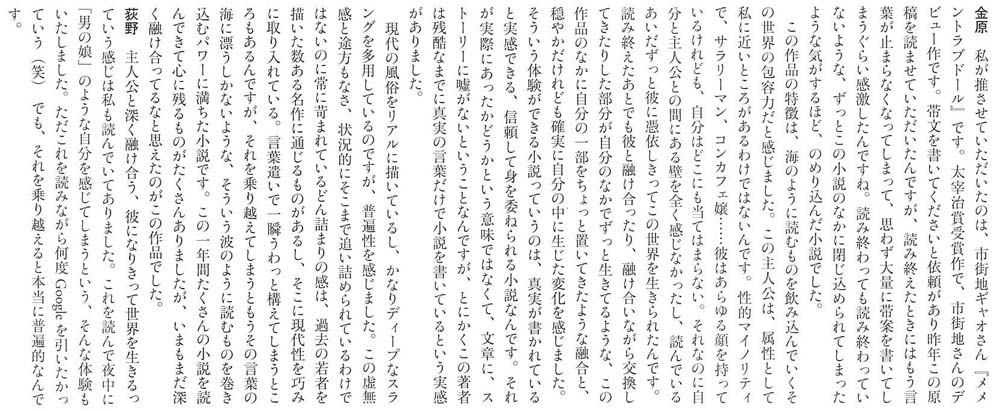 金原　私が推させていただいたのは、市街地ギャオさん『メメ
ントラブドール』です。太宰治賞受賞作で、市街地さんのデ
ビュー作です。帯文を書いてくださいと依頼があり昨年この原
稿を読ませていただいたんですが、読み終えたときにはもう言
葉が止まらなくなってしまって、思わず大量に帯案を書いてし
まうぐらい感激したんですよね。読み終わっても読み終わってい
ないような、ずっとこの小説のなかに閉じ込められてしまった
ような気がするほど、のめり込んだ小説でした。
　この作品の特徴は、海のように読むものを飲み込んでいくそ
の世界の包容力だと感じました。この主人公は、属性として
私に近いところがあるわけではないんです。性的マイノリティ
で、サラリーマン、コンカフェ嬢……彼はあらゆる顔を持って
いるけれども、自分はどこにも当てはまらない。それなのに自
分と主人公との間にある壁を全く感じなかったし、読んでいる
あいだずっと彼に憑依しきってこの世界を生きられたんです。
読み終えたあとでも彼と融け合ったり、融け合いながら交換し
てきたりした部分が自分のなかでずっと生きてるような、この
作品のなかに自分の一部をちょっと置いてきたような融合と、
穏やかだけれども確実に自分の中に生じた変化を感じました。
そういう体験ができる小説っていうのは、真実が書かれている
と実感できる、信頼して身を委ねられる小説なんです。それ
が実際にあったかどうかという意味ではなくて、文章に、ス
トーリーに嘘がないということなんですが、とにかくこの著者
は残酷なまでに真実の言葉だけで小説を書いているという実感
がありました。
　現代の風俗をリアルに描いているし、かなりディープなスラ
ングを多用しているのですが、普遍性を感じました。この虚無
感と途方もなさ、状況的にそこまで追い詰められているわけで
はないのに常に苛まれているどん詰まりの感は、過去の若者を
描いた数ある名作に通じるものがあるし、そこに現代性を巧み
に取り入れている。言葉遣いで一瞬うわっと構えてしまうとこ
ろもあるんですが、それを乗り越えてしまうともうその言葉の
海に漂うしかないような、そういう波のように読むものを巻き
込むパワーに満ちた小説です。この一年間たくさんの小説を読
んできて心に残るものがたくさんありましたが、いまもまだ深
く融け合ってるなと思えたのがこの作品でした。
荻野　主人公と深く融け合う、彼になりきって世界を生きるっ
ていう感じは私も読んでいてありました。これを読んで夜中に
「男の娘」のような自分を感じてしまうという、そんな体験も
いたしました。ただこれを読みながら何度 Google を引いたかっ
ていう（笑）でも、それを乗り越えると本当に普遍的なんで
す。